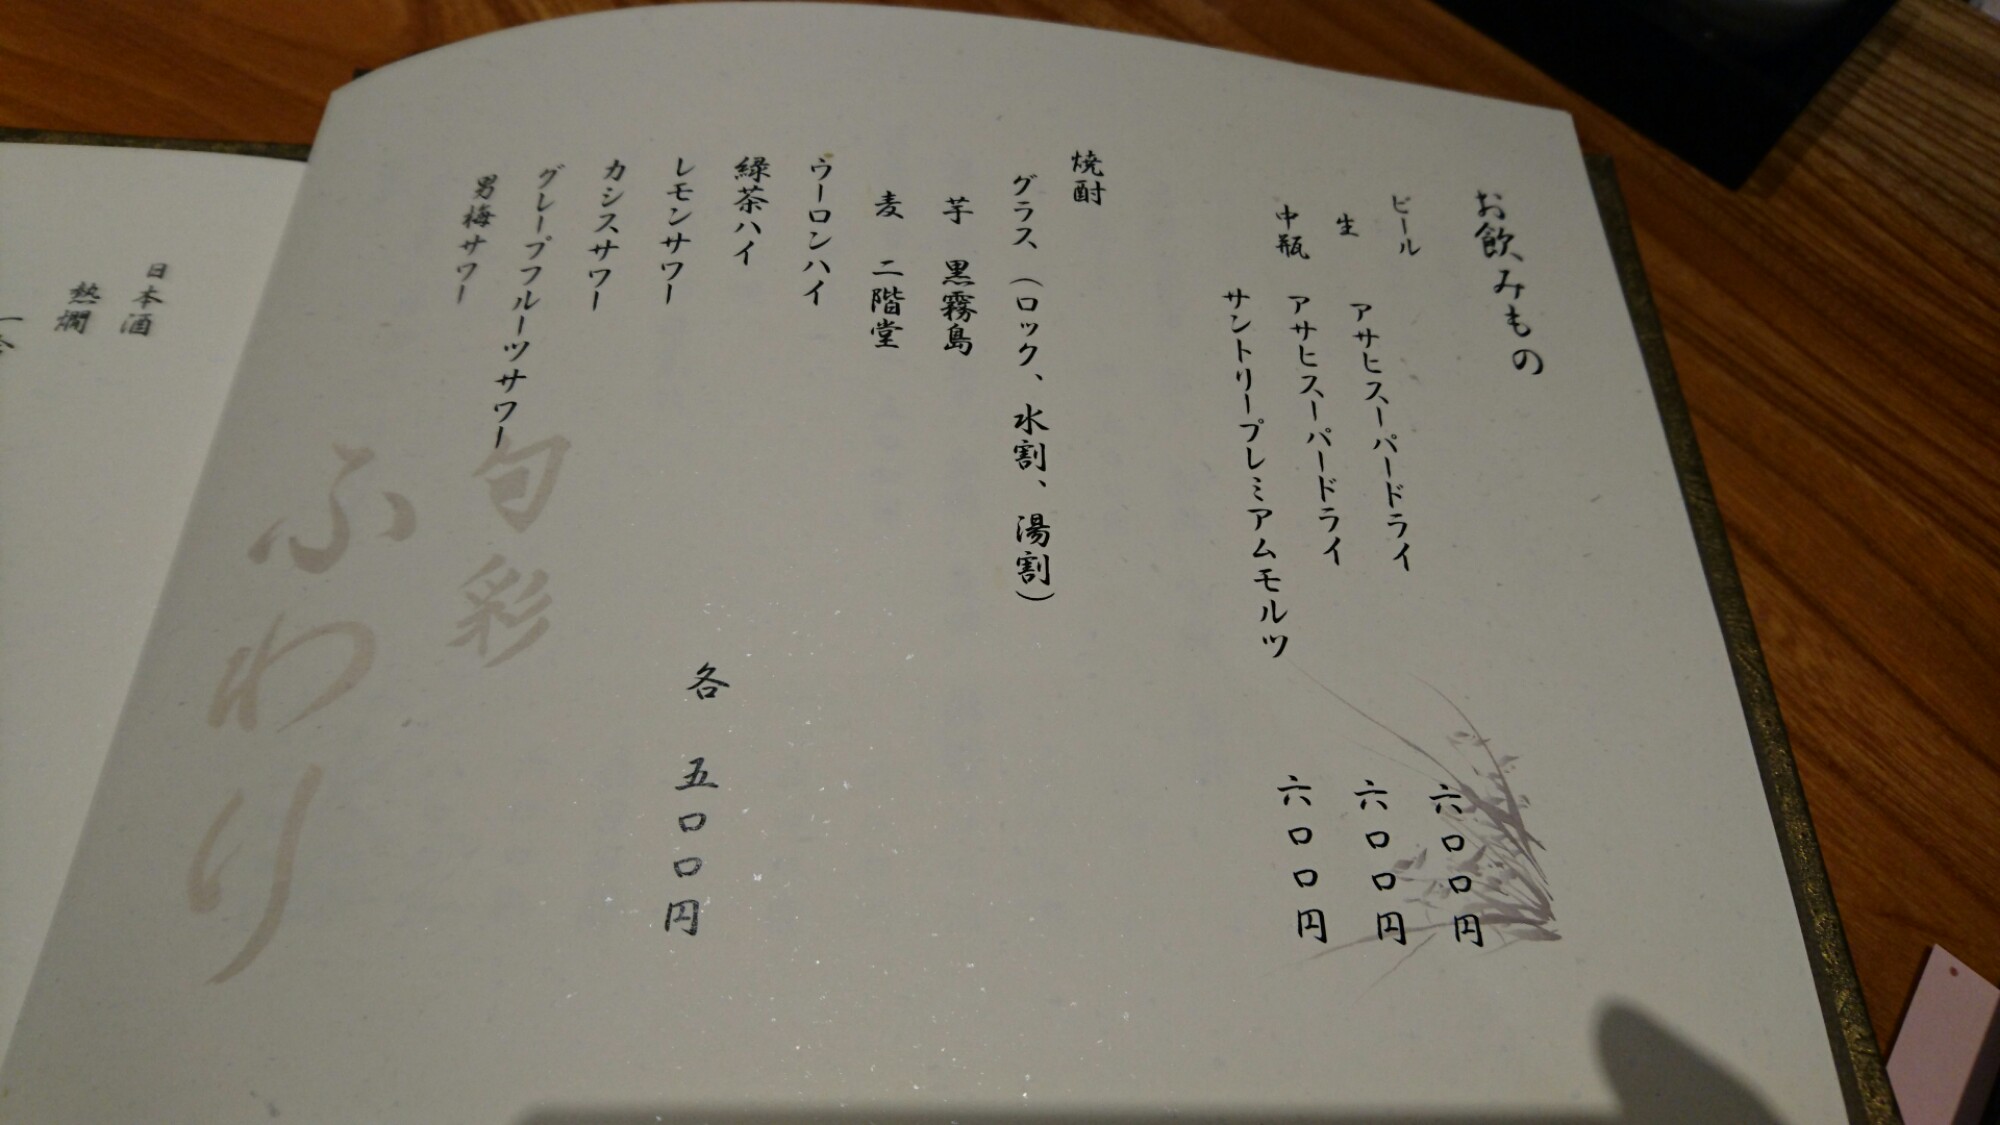 お飲みもの
ビール
生 アサヒスーパードライ 六〇〇円
中瓶 アサヒスーパードライ 六〇〇円
サントリープレミアムモルツ 六〇〇円
焼酎
グラス（ロック、水割、湯割）
芋 黒霧島
麦 二階堂
ウーロンハイ
緑茶ハイ
レモンサワー
カシスサワー
グレープフルーツサワー
男梅サワー
各 五〇〇円
旬彩
ふわり
日本酒
熱燗